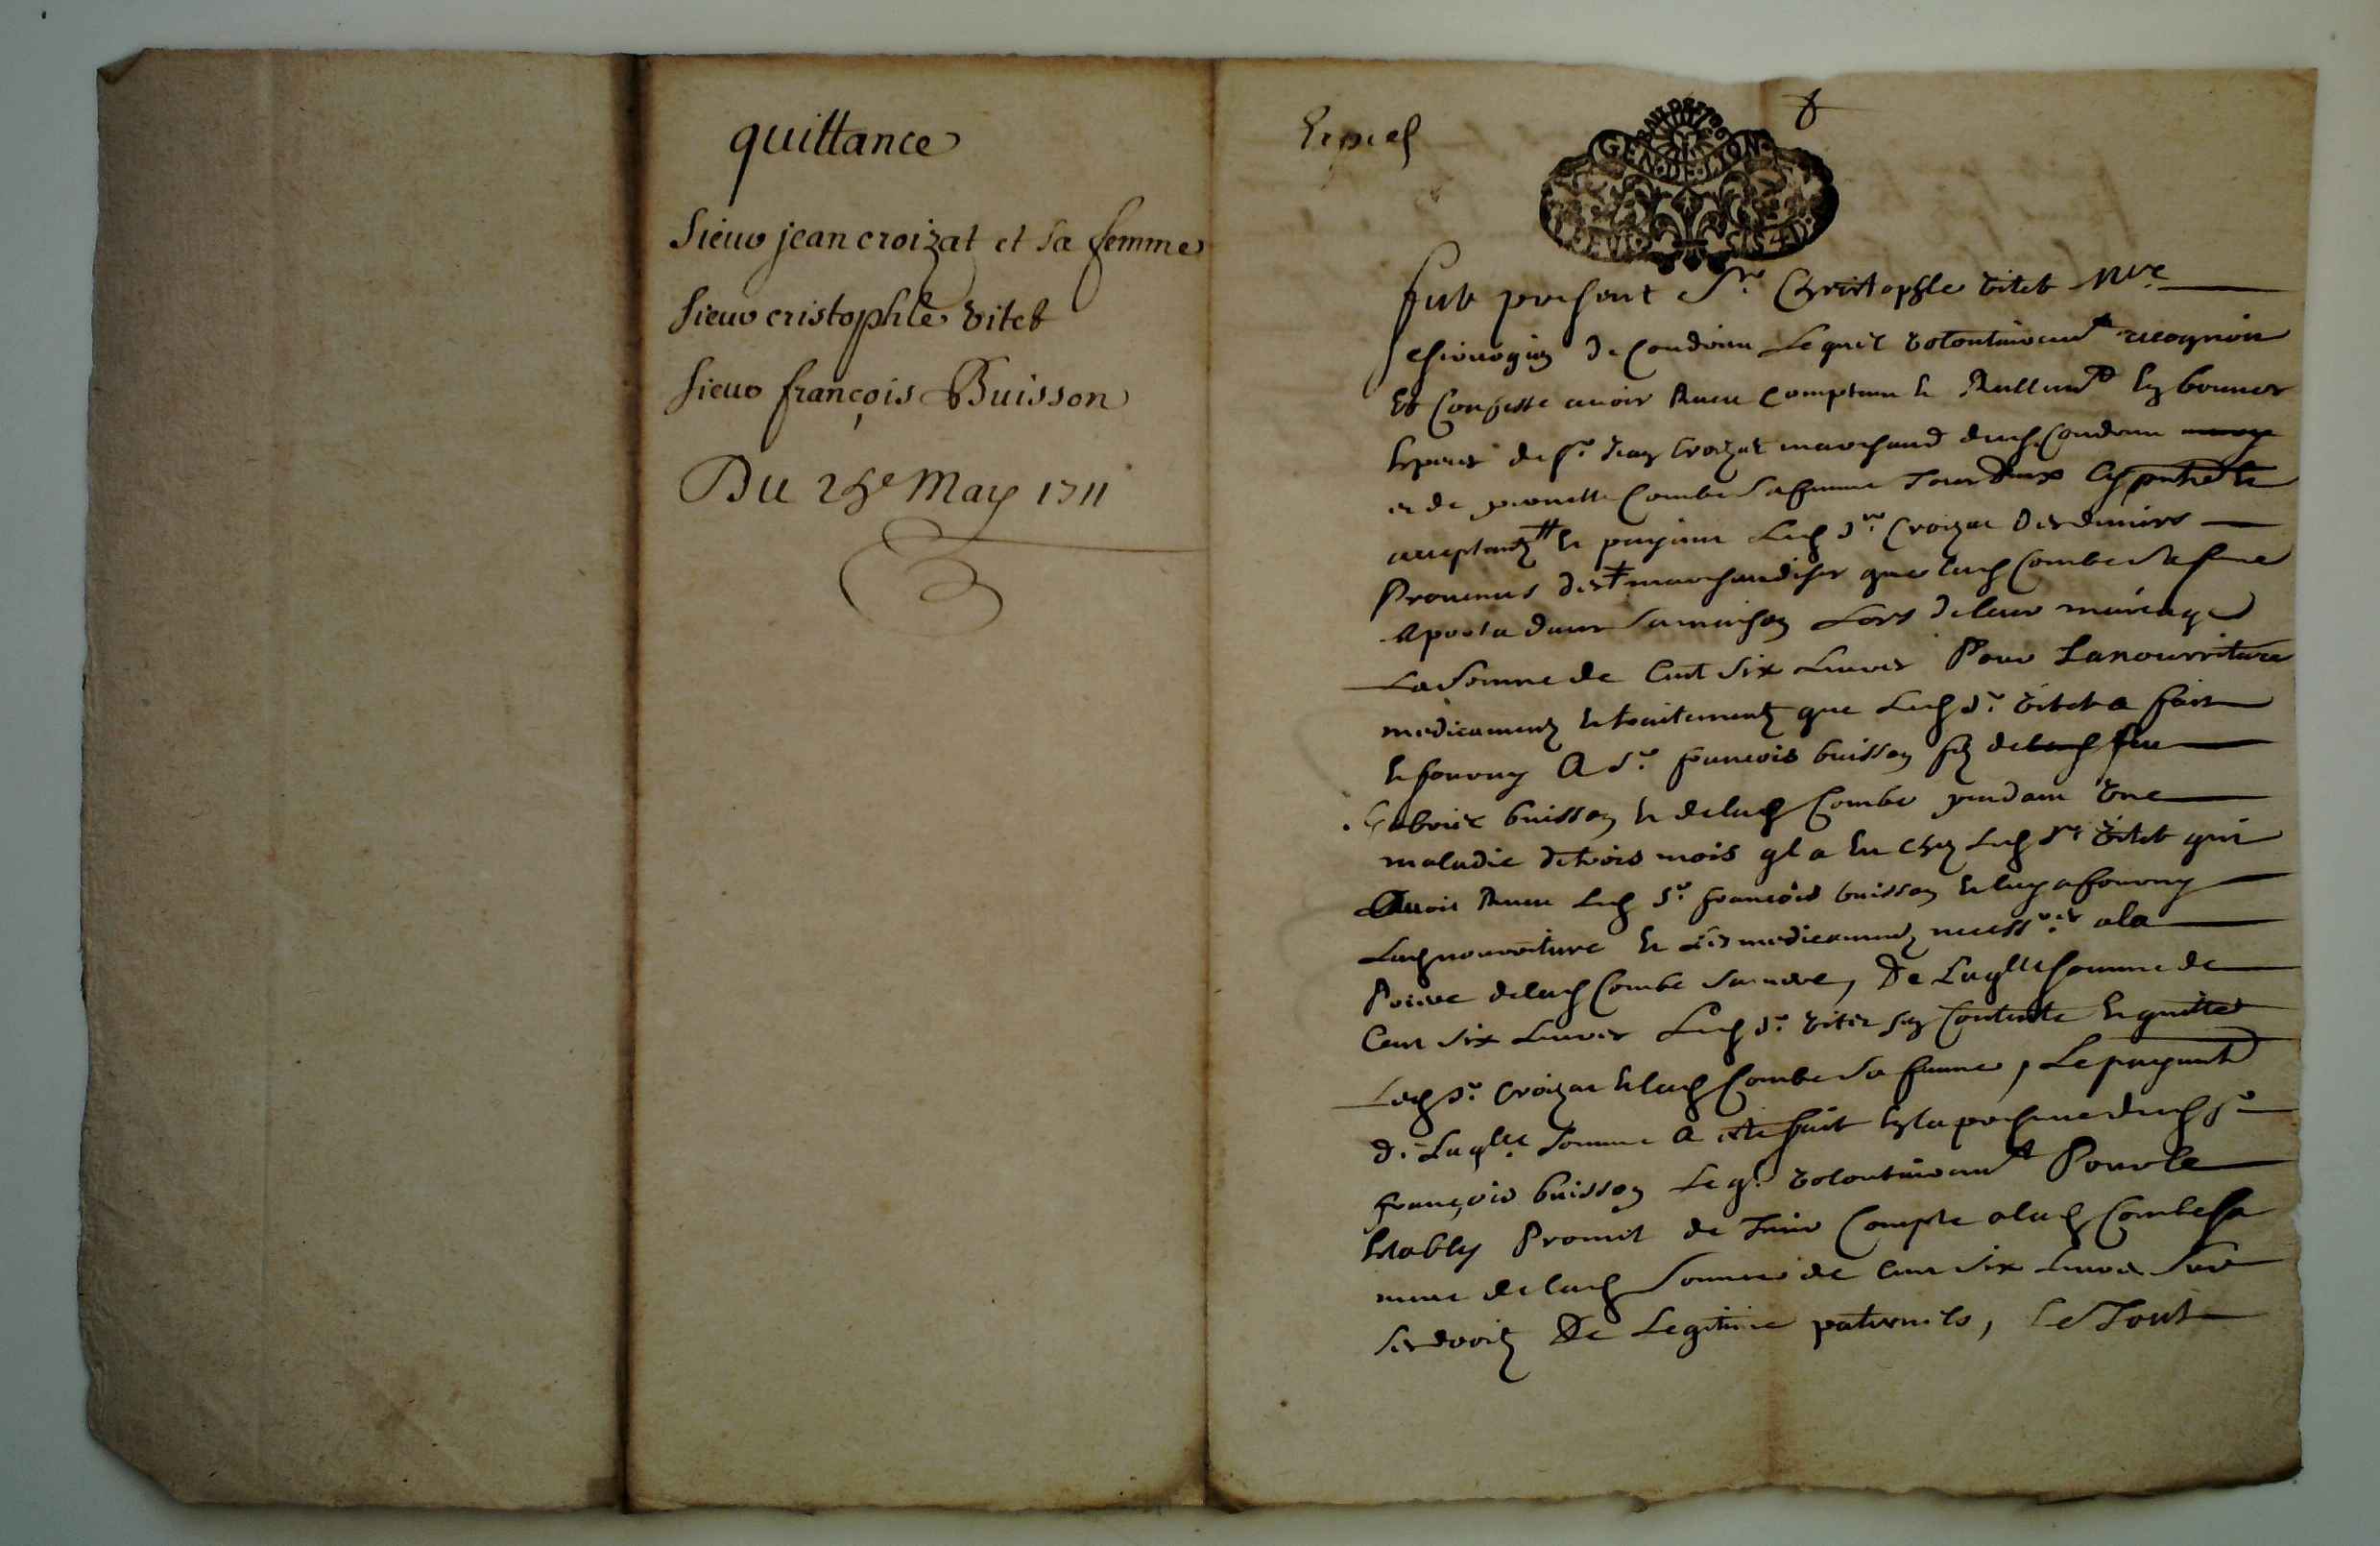 quittance
Sieur jean croizat et sa femme
Sieur cristophle vitet
Sieur françois Buisson
Du 25e May 1711
GEN·DE·LYON
fut present Sr. Christophle vitet Mre
chirurgien de Condrieu Lequel volontairemt recognoit
Et Confesse avoir Receu Comptant et Reellemt En bonnes
Especes de Sr. Jean Croizat marchand dud. Condrieu
et de pierrette Combe sa femme Tous deux Cy presents
acceptantz et payant Led Sr. Croizat Des deniers
Provenus des marchandises que lad Combe sa feme
Aporta dans sa maison Lors de leur mariage
La Somme de Cent Six Livres Pour La nourriture
medicamentz et traitementz que Led Sr. vitet a fait
et fourny A Sr. francois buisson filz de feu
Gabriel buisson et de lad Combe pendant Une
maladie de trois mois ql a Eu chez Led Sr. vitet qui
Avoit Receu Led Sr. francois buisson et luy a fourny
Lad nourriture et Les medicamentz necessres a la
Priere de lad Combe sa mere, De Laqlle somme de
Cent Six Livres Led Sr. vitet sen Contente et quitte
Led Sr. Croizat et lad Combe sa femme, Le payement
De Laqlle Somme A ete fait En la presence dud Sr
françois buisson Leql volontairemt Pour ce
Estably Promet de Tenir Compte a lad Combe sa
mere de lad Somme de Cent Six Livres Sur
Ses droitz De Legitime paternels, Le Tout